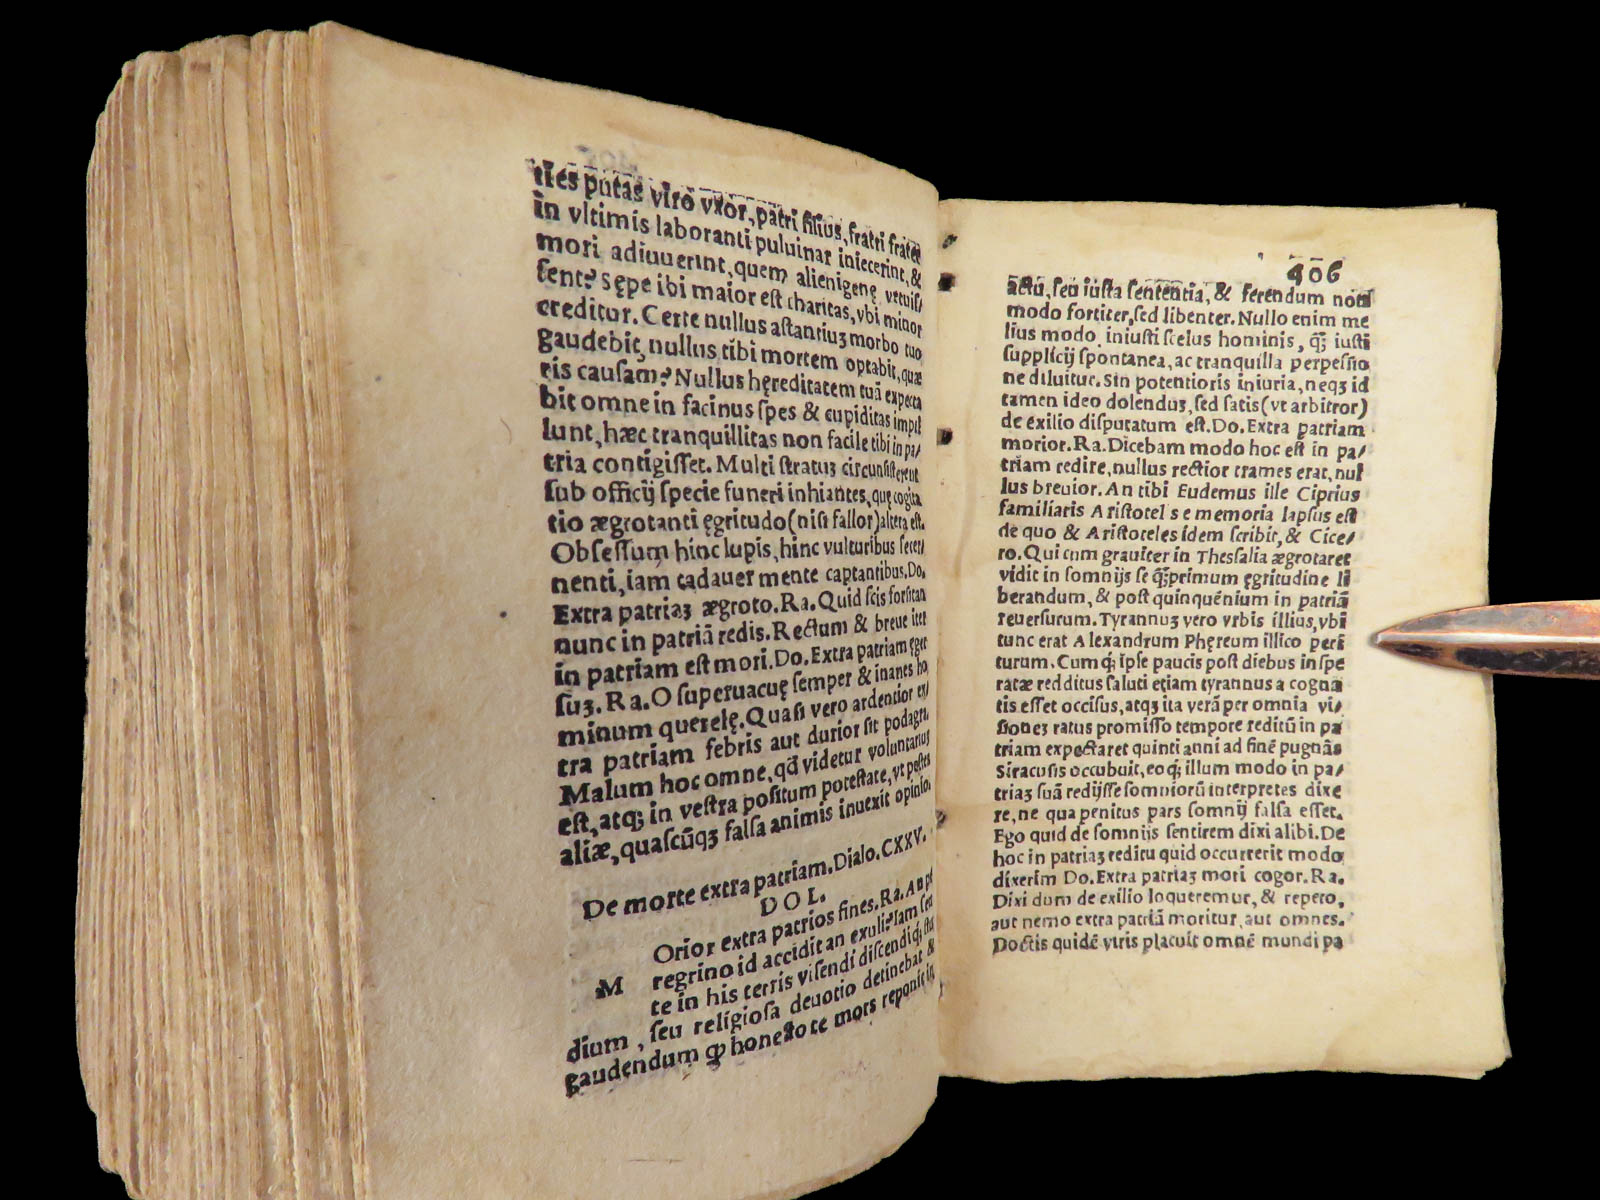 ties putas virō vxor, patri filius, fratri frater
in vltimis laboranti puluinar iniecerint, &
mori adiuuerint, quem alienigenę vetuis/
sent? Sępe ibi maior est charitas, vbi minor
creditur. Certe nullus astantiuȝ morbo tuo
gaudebit, nullus tibi mortem optabit, quæ
ris causam? Nullus hęreditatem tuā expecta
bit omne in facinus spes & cupiditas impel
lunt, hæc tranquillitas non facile tibi in pa/
tria contigisset. Multi stratuȝ circunsisterent
sub officij specie funeri inhiantes, quę cogita
tio ægrotanti ęgritudo (nisi fallor) altera est.
Obsessum hinc lupis, hinc vulturibus secer/
nenti, iam cadauer mente captantibus. Do.
Extra patriaȝ ægroto. Ra. Quid scis forsitan
nunc in patriā redis. Rectum & breue iter
in patriam est mori. Do. Extra patriam ęger
suȝ. Ra. O superuacuę semper & inanes ho,
minum querelę. Quasi vero ardentior ex/
tra patriam febris aut durior sit podagra,
Malum hoc omne, qđ videtur voluntarius
est, atqȝ in vestra positum potestate, vt pestes
aliæ, quascūqȝ falsa animis inuexit opinio.
De morte extra patriam. Dialo. CXXV.
DOL.
M
Orior extra patrios fines. Ra. An pe
regrino id accidit an exuli? Iam seu
te in his terris visendi discendiqȝ stu
dium, seu religiosa deuotio detinebat &
gaudendum ꝙ honesto te mors reponit in
406
actu, seu iusta sententia, & ferendum non
modo fortiter, sed libenter. Nullo enim me
lius modo iniusti scelus hominis, q̄ȝ iusti
supplicij spontanea, ac tranquilla perpessio
ne diluitur. Sin potentioris iniuria, neqȝ id
tamen ideo dolenduȝ, sed satis (vt arbitror)
de exilio disputatum est. Do. Extra patriam
morior. Ra. Dicebam modo hoc est in pa/
triam redire, nullus rectior trames erat, nul
lus breuior. An tibi Eudemus ille Ciprius
familiaris Aristotel s e memoria lapsus est
de quo & Aristoteles idem scribit, & Cice/
ro. Qui cum grauiter in Thesalia ægrotaret
vidit in somnijs se q̄ȝprimum ęgritudine li
berandum, & post quinquēnium in patriā
reuersurum. Tyrannuȝ vero vrbis illius, vbi
tunc erat Alexandrum Phęreum illico peri
turum. Cumqȝ ipse paucis post diebus inspe
ratæ redditus saluti etiam tyrannus a cogna
tis esset occisus, atqȝ ita verā per omnia vi/
sioneȝ ratus promisso tempore reditū in pa
triam expectaret quinti anni ad finē pugnās
Siracusis occubuit, eoqȝ illum modo in pa/
triaȝ suā redijsse somniorū interpretes dixe
re, ne qua penitus pars somnij falsa esset.
Ego quid de somnijs sentirem dixi alibi. De
hoc in patriaȝ reditu quid occurrerit modo
dixerim Do. Extra patriaȝ mori cogor. Ra.
Dixi dum de exilio loqueremur, & repeto,
aut nemo extra patriā moritur, aut omnes.
Doctis quidē viris placuit omnē mundi pa